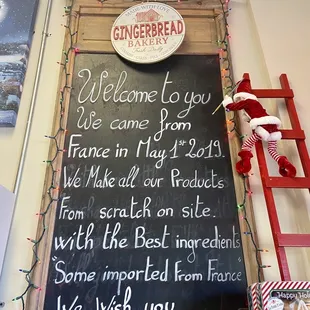 MADE WITH LOVE
GINGERBREAD
BAKERY
Fresh Daily
Welcome to you
We came from
France in May 1st 2019.
We Make all our Products
From scratch on site.
with the Best ingredients
"Some imported From France"
We Wish you
Happy